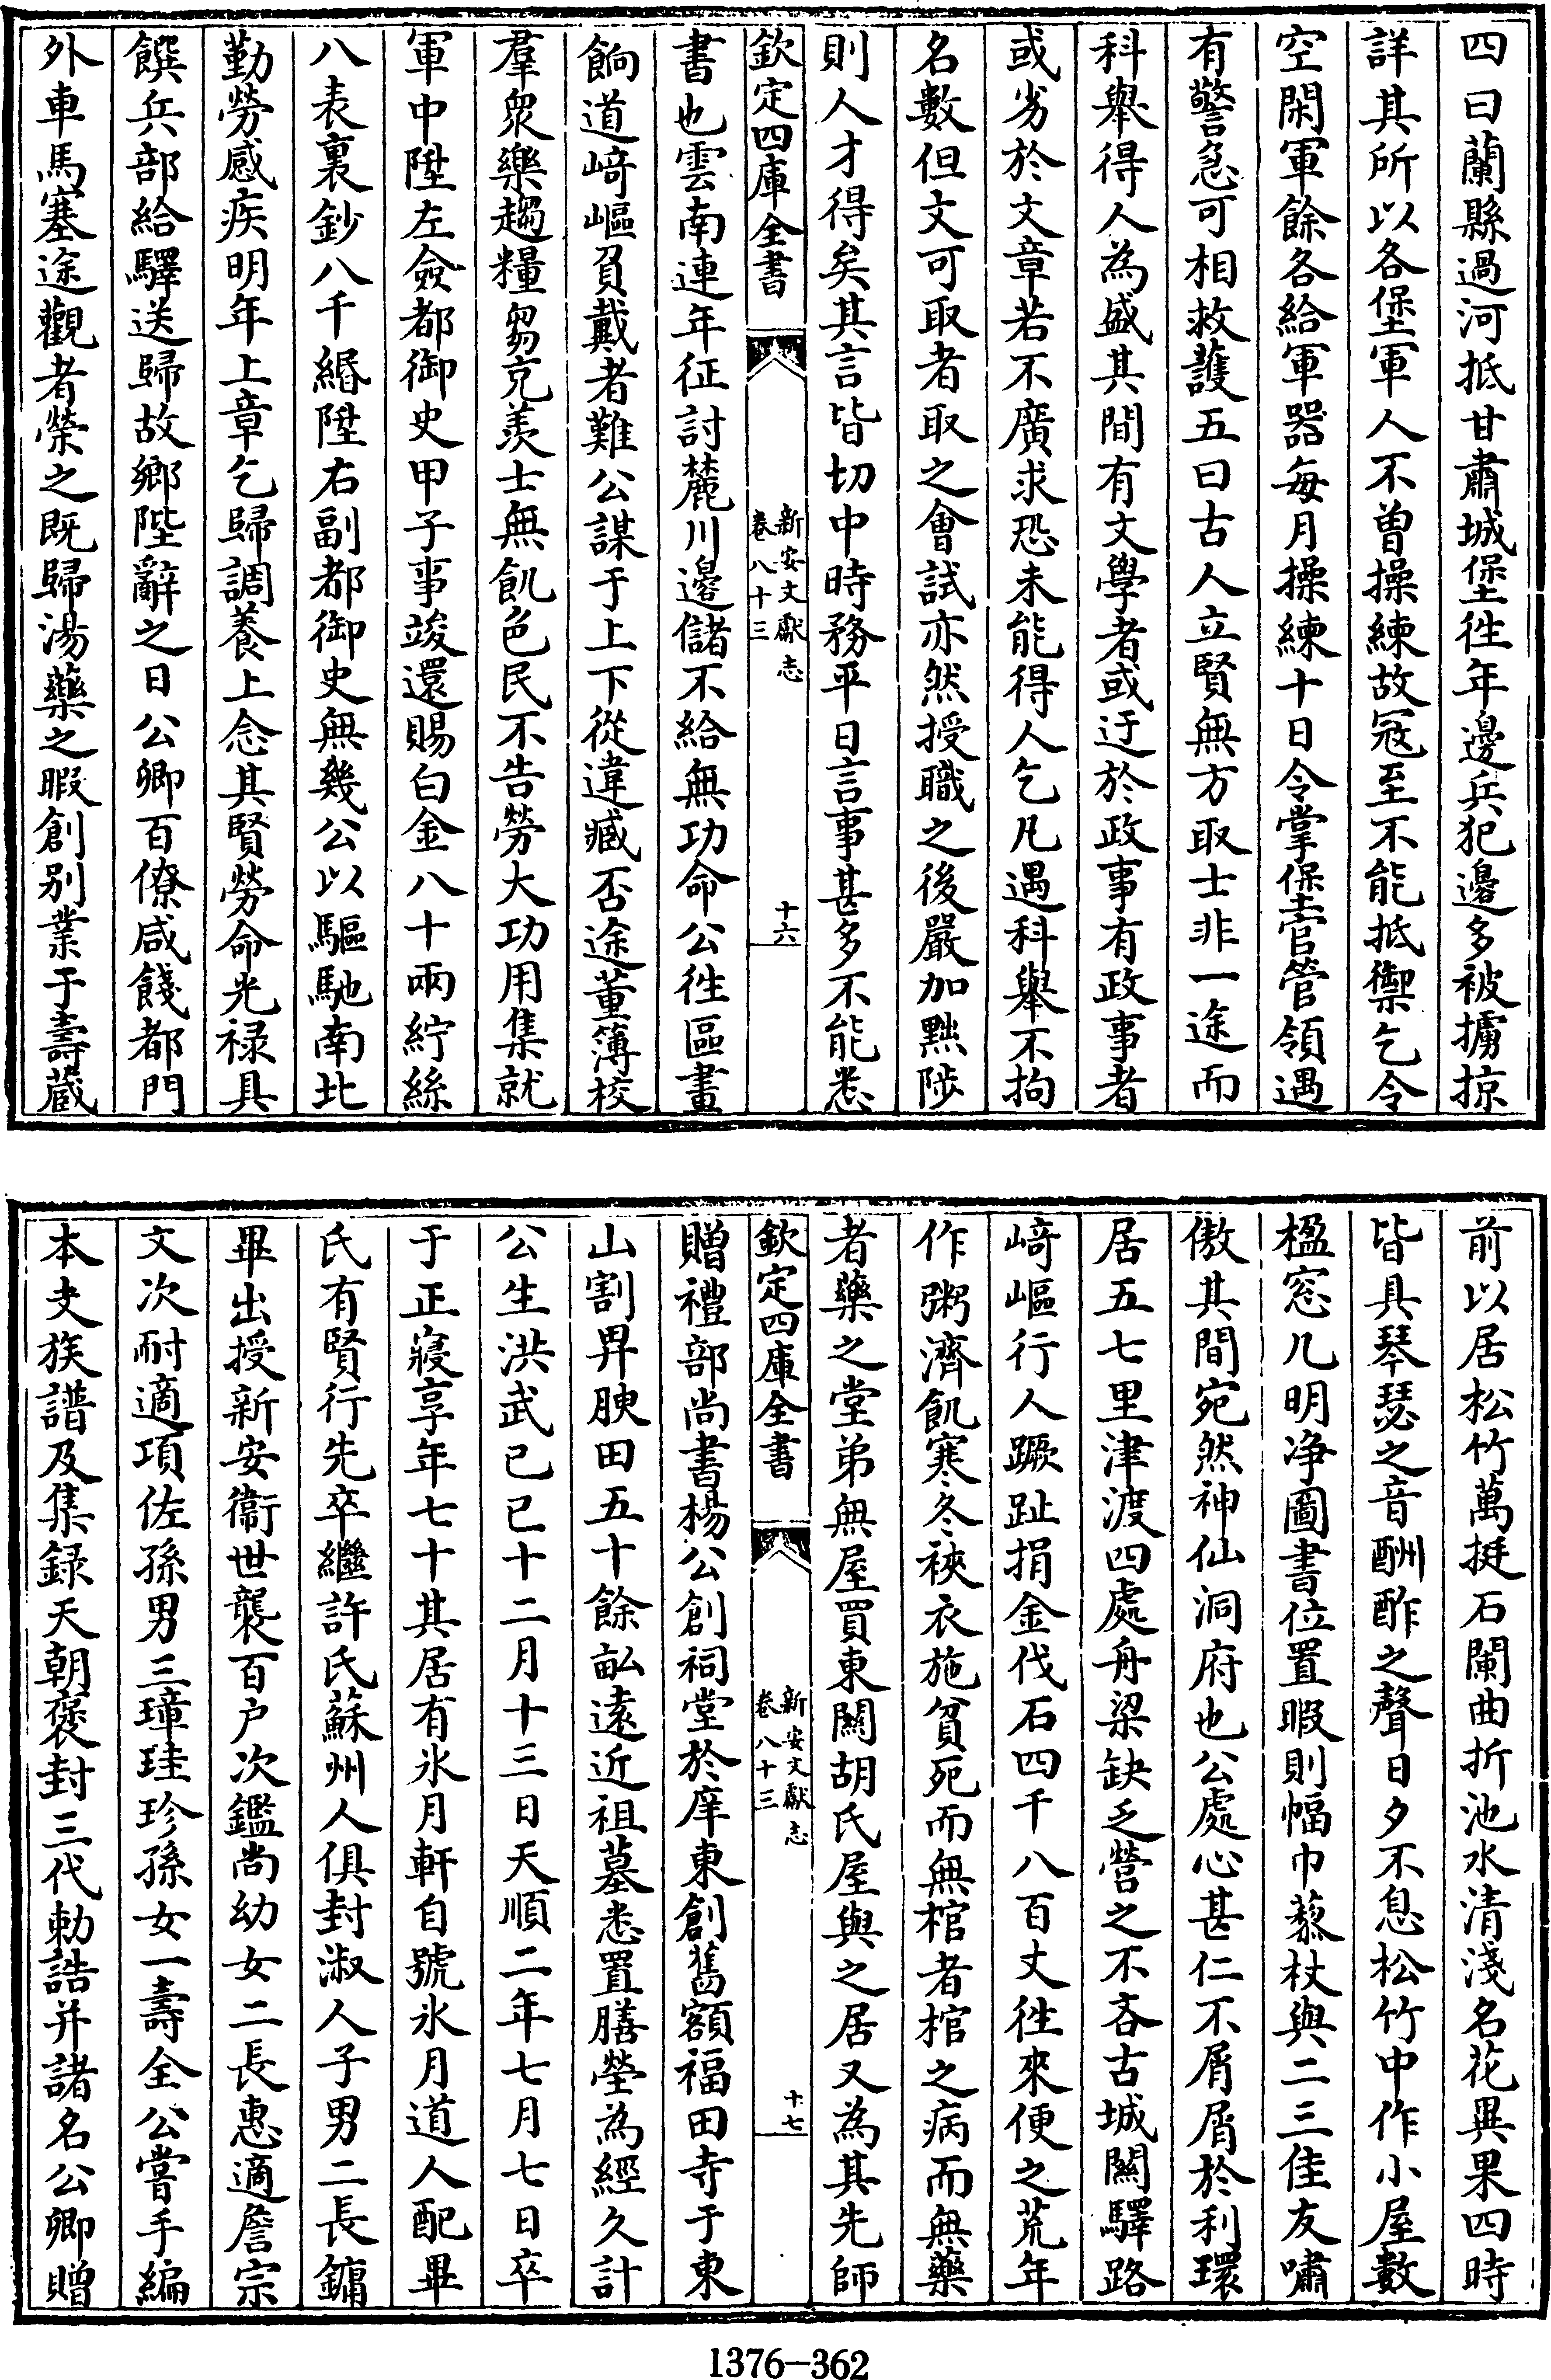 四曰蘭縣過河抵甘肅城堡徃年邊兵犯邊多被擄掠
詳其所以各堡軍人不曽操練故冦至不能抵禦乞令
空閑軍餘各給軍器每月操練十日令掌堡官管領遇
有警急可相救䕶五曰古人立賢無方取士非一途而
科舉得人為盛其間有文學者或迂於政事有政事者
或劣於文章若不廣求恐未能得人乞凡遇科舉不拘
名數但文可取者取之會試亦然授職之後嚴加黜陟
則人才得矣其言皆切中時務平日言事甚多不能悉
欽定四庫全書
新安文獻志
卷八十三
十六
書也雲南連年征討麓川邊儲不給無功命公徃區畫
餉道﨑嶇負戴者難公謀于上下從違臧否途董簿校
羣衆樂趨糧芻充羨士無飢色民不告勞大功用集就
軍中陞左僉都御史甲子事竣還賜白金八十兩紵絲
八表裏鈔八千緡陞右副都御史無幾公以驅馳南北
勤勞感疾明年上章乞歸調養上念其賢勞命光禄具
饌兵部給驛送歸故鄉陛辭之日公卿百僚咸餞都門
外車馬塞途觀者榮之既歸湯藥之暇創别業于壽藏
前以居松竹萬挺石闌曲折池水清淺名花異果四時
皆具琴瑟之音酬酢之聲日夕不息松竹中作小屋數
楹窓几明浄圖書位置暇則幅巾藜杖與二三佳友嘯
傲其間宛然神仙洞府也公處心甚仁不屑屑於利環
居五七里津渡四處舟梁缺乏營之不吝古城關驛路
﨑嶇行人蹶趾捐金伐石四千八百丈徃來便之荒年
作粥濟飢寒冬裌衣施貧死而無棺者棺之病而無藥
者藥之堂弟無屋買東關胡氏屋與之居又為其先師
欽定四庫全書
新安文獻志
卷八十三
十七
贈禮部尚書楊公創祠堂於庠東創舊額福田寺于東
山割畀腴田五十餘畆遠近祖墓悉置膳塋為經久計
公生洪武已已十二月十三日天順二年七月七日卒
于正寢享年七十其居有氷月軒自號氷月道人配畢
氏有賢行先卒繼許氏蘇州人俱封淑人子男二長鏞
畢出授新安衞世襲百户次鑑尚幼女二長惠適詹宗
文次耐適項佐孫男三璋珪珍孫女一壽全公嘗手編
本支族譜及集録天朝褒封三代勅誥并諸名公卿贈
1376—362